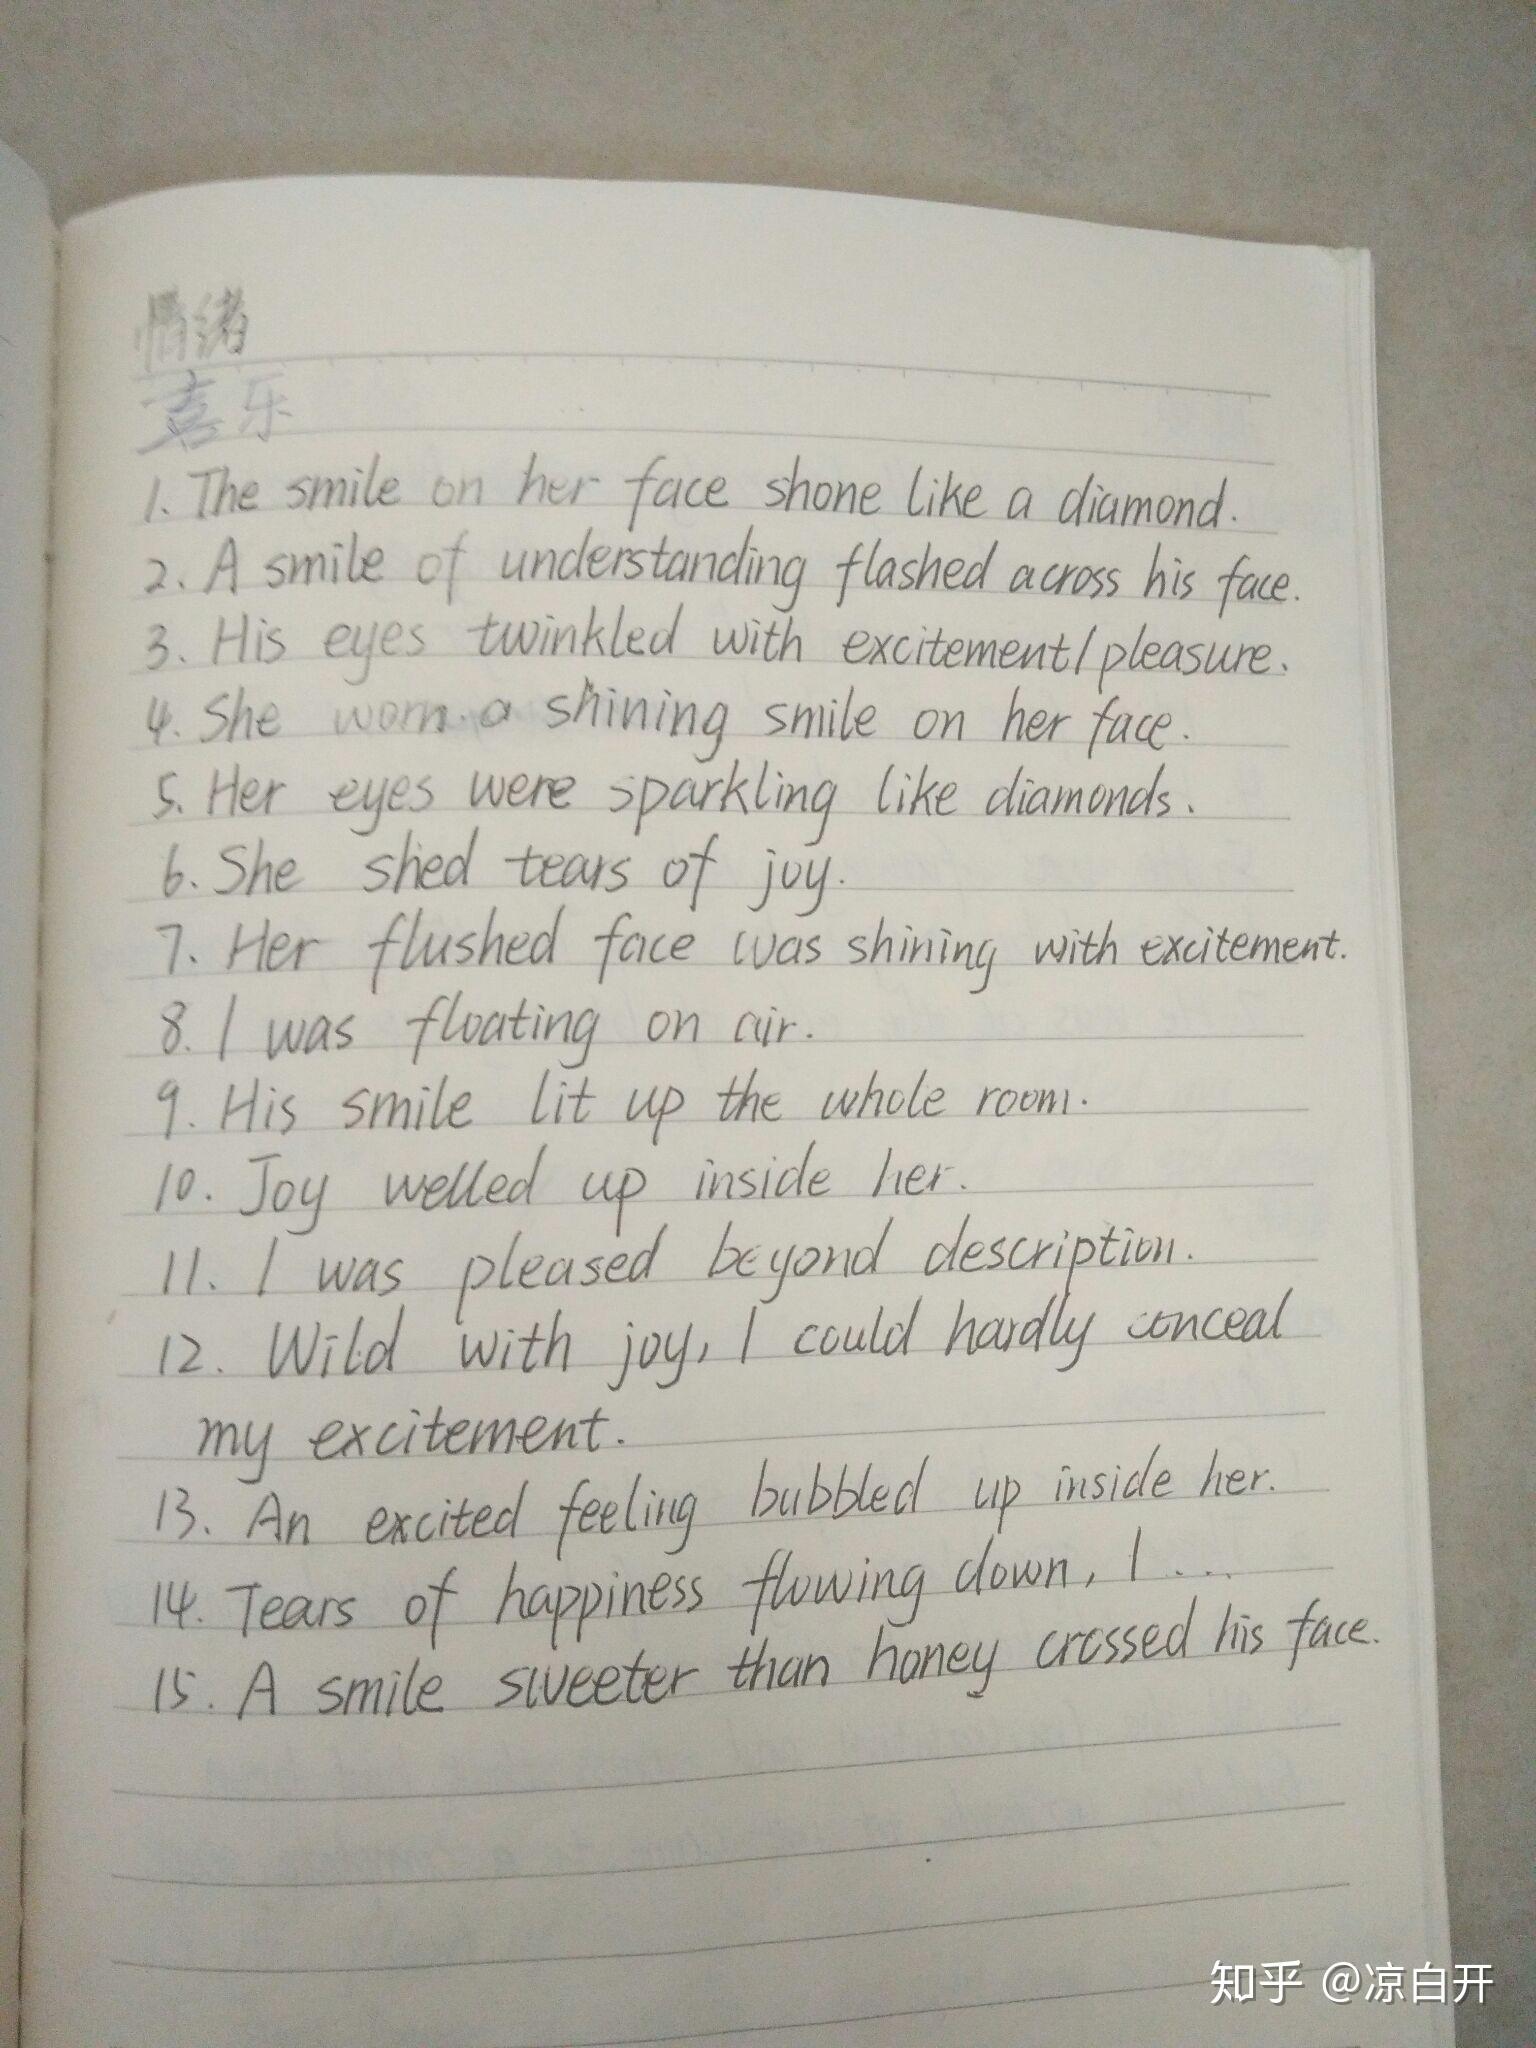 情绪
喜乐
1. The smile on her face shone like a diamond.
2. A smile of understanding flashed across his face.
3. His eyes twinkled with excitement/pleasure.
4. She worn a shining smile on her face.
5. Her eyes were sparkling like diamonds.
6. She shed tears of joy.
7. Her flushed face was shining with excitement.
8. I was floating on air.
9. His smile lit up the whole room.
10. Joy welled up inside her.
11. I was pleased beyond description.
12. Wild with joy, I could hardly conceal
my excitement.
13. An excited feeling bubbled up inside her.
14. Tears of happiness flowing down, I ...
15. A smile sweeter than honey crossed his face.
知乎 @凉白开